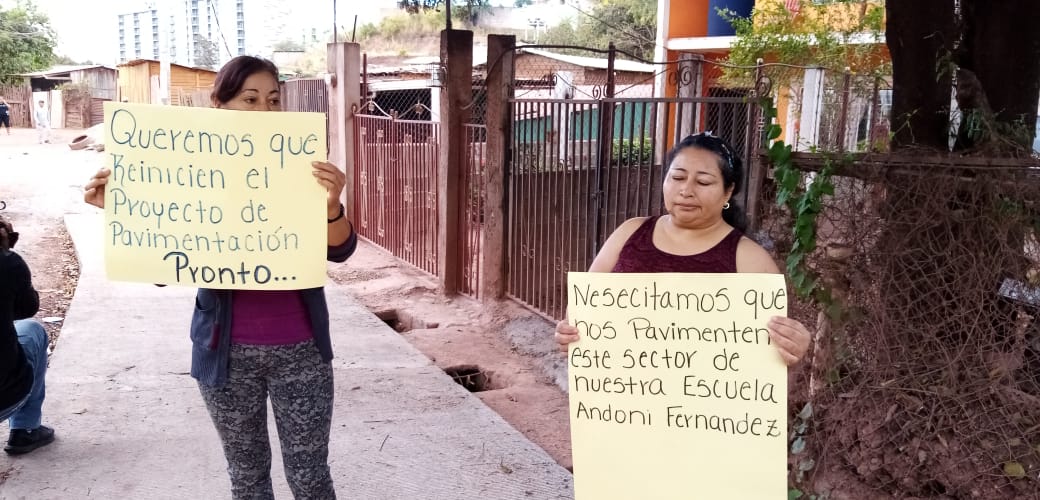 Queremos que
Reinicien el
Proyecto de
Pavimentación
Pronto...
Nesecitamos que
nos Pavimenten
este sector de
nuestra Escuela
Andoni Fernandez